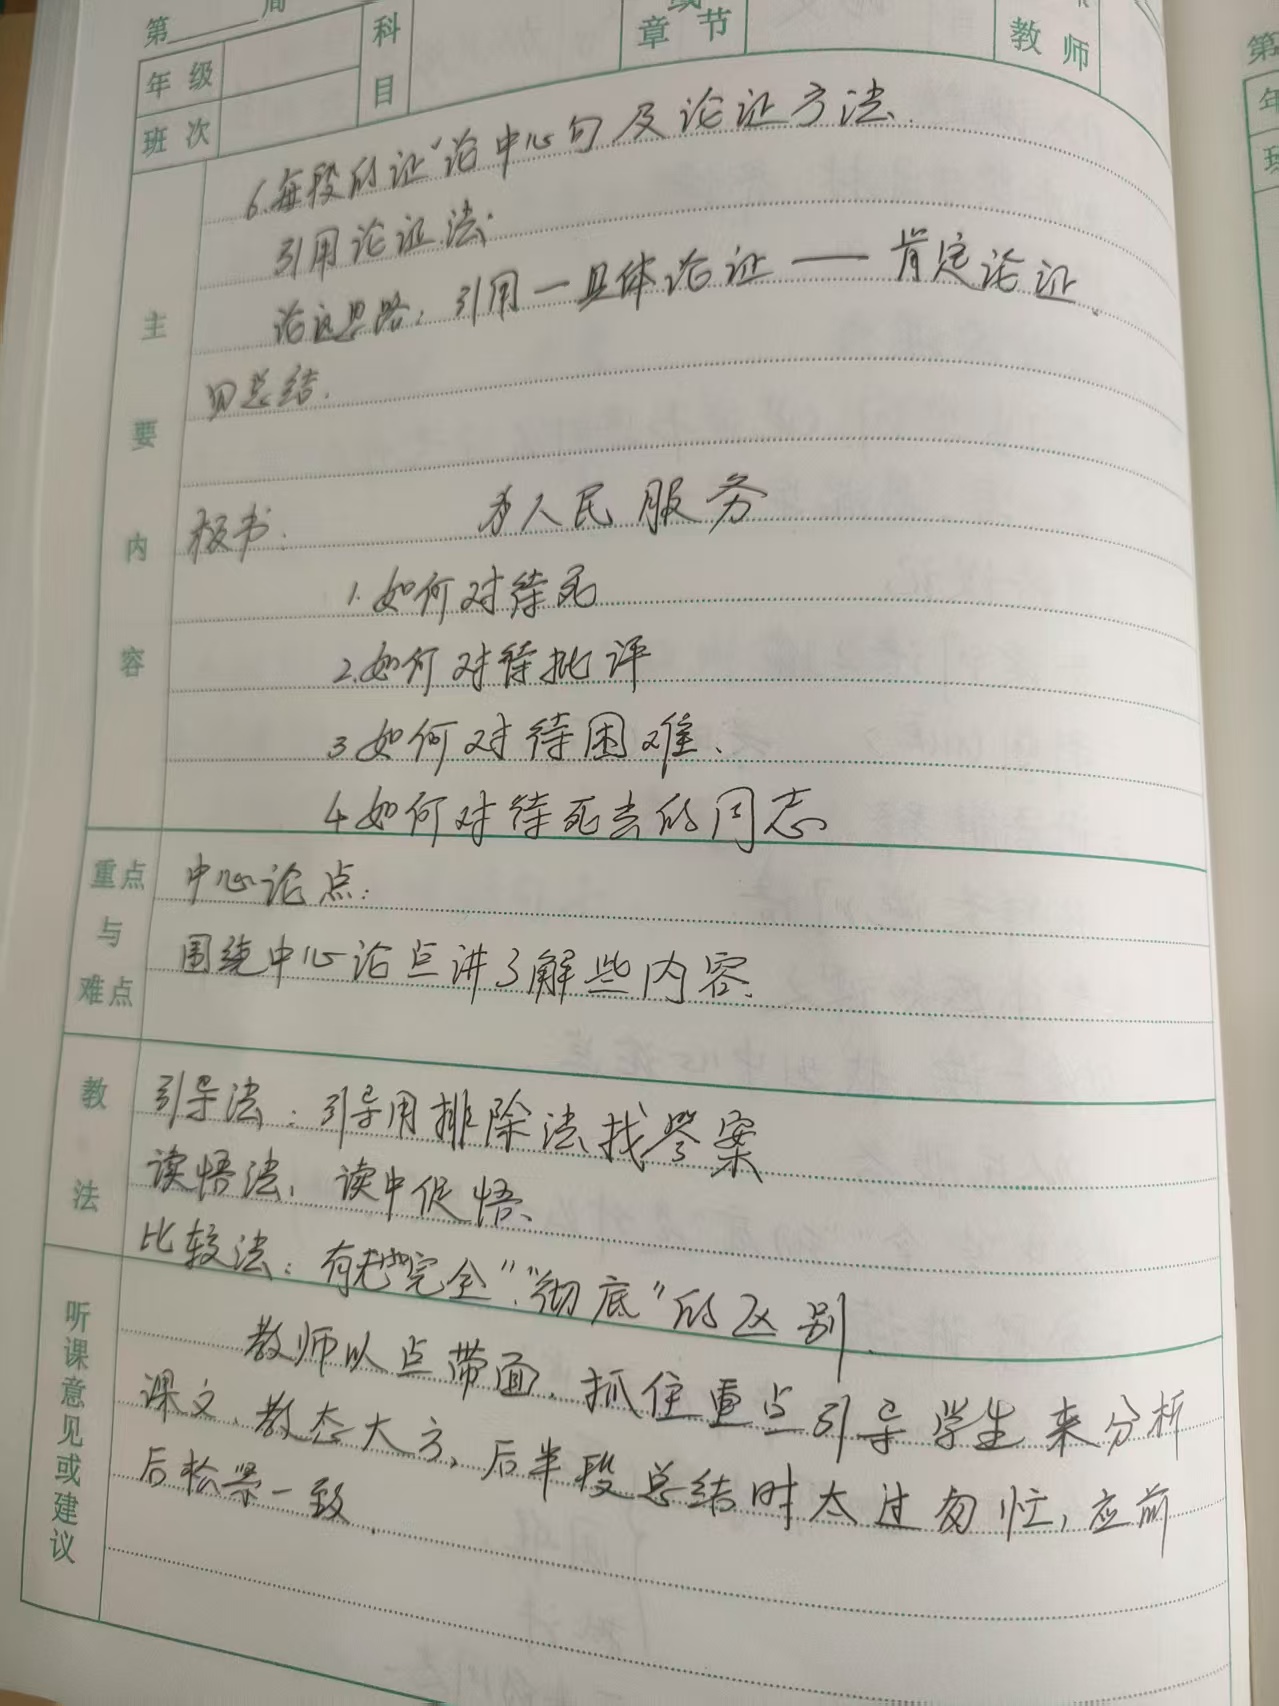 第 周
年级 科目 章节 教师
班次
主要内容
6.每段的证论中心句及论证方法.
引用论证法:
论证思路: 引用—具体论证——肯定论证.
四总结.
板书: 为人民服务
1.如何对待死
2.如何对待批评
3.如何对待困难.
4.如何对待死去的同志
重点与难点
中心论点:
围绕中心论点讲了解些内容.
教法
引导法: 引导用排除法找答案
读悟法: 读中促悟.
比较法: 有"完全""彻底"的区别.
听课意见或建议
教师以点带面, 抓住重点引导学生来分析
课文, 教态大方, 后半段总结时太过匆忙, 应前
后松紧一致.
第
年
班